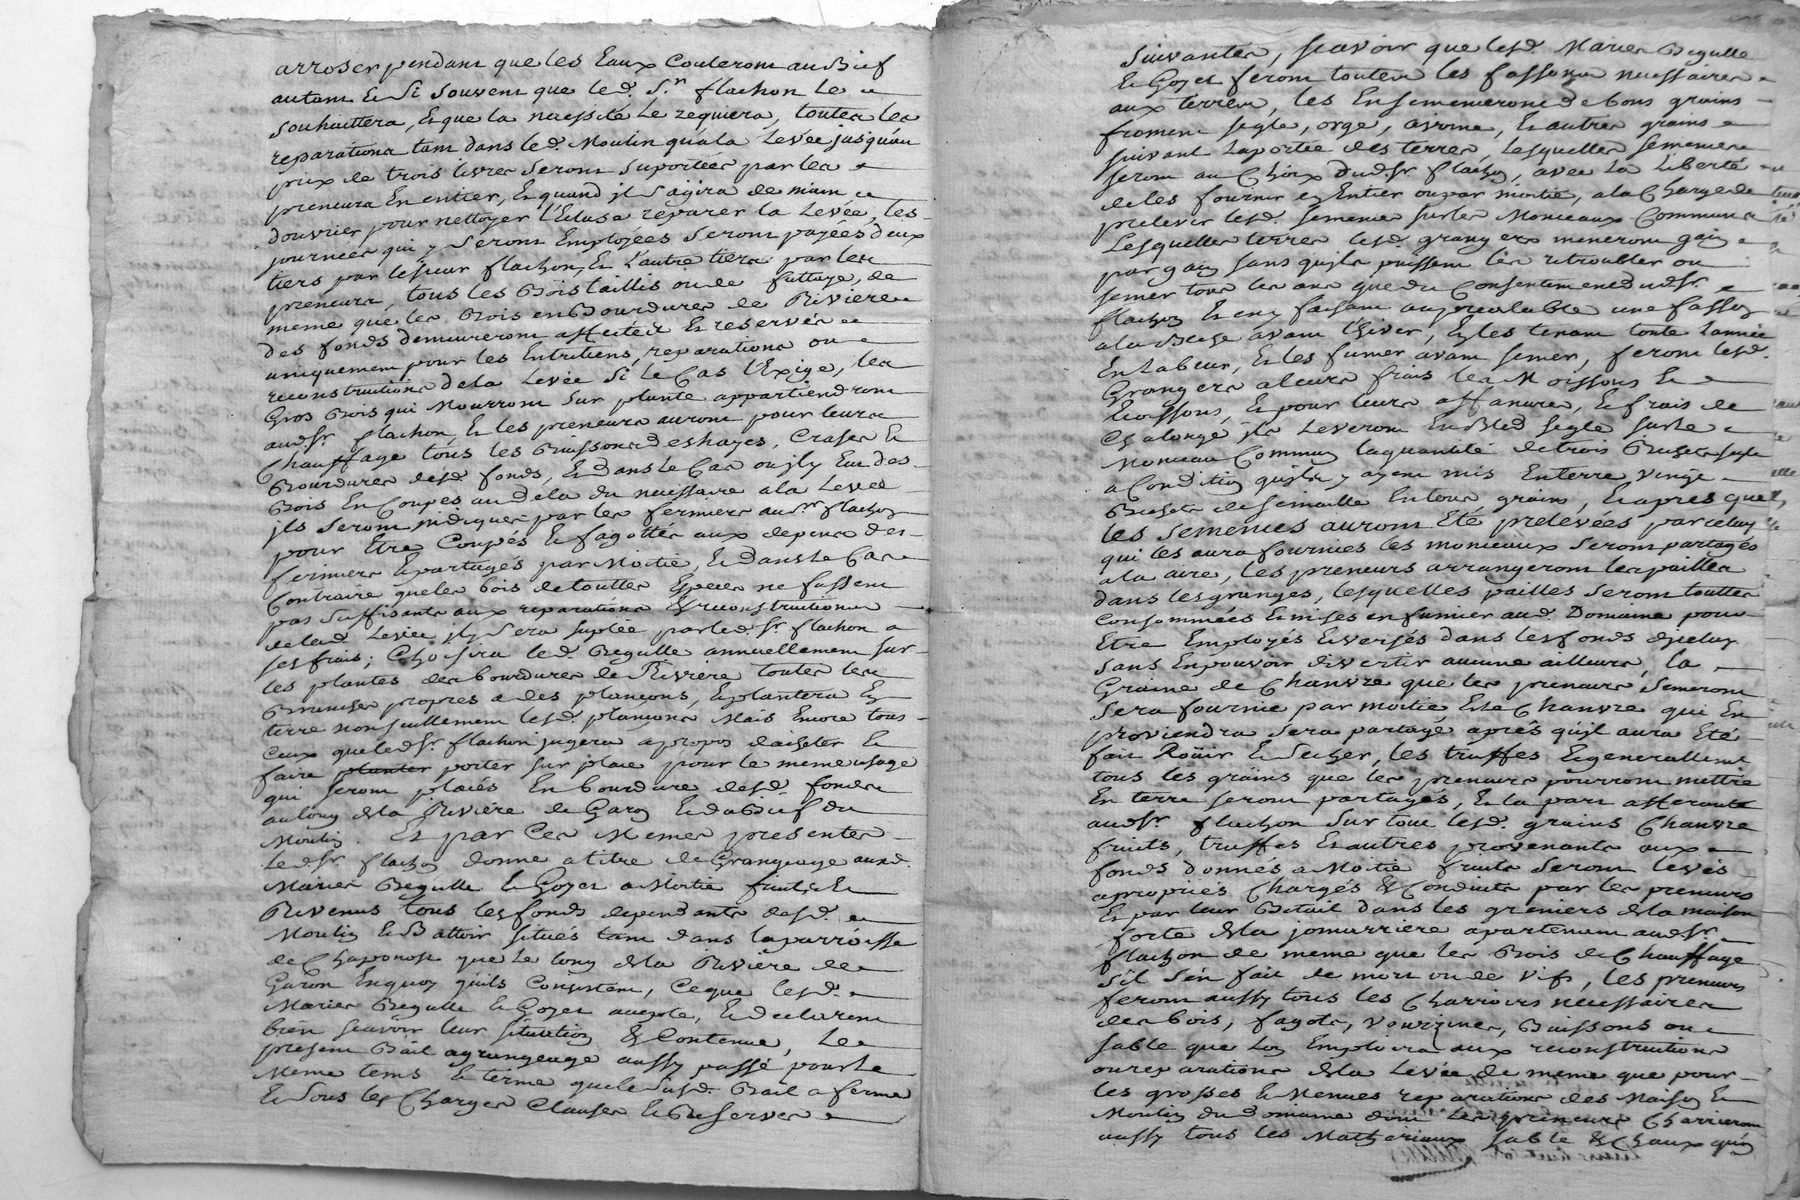 arroser pendant que les Eaux Couleront au Bief
autant & Si Souvent que led. S.r flachon le
souhaittera, & que la necessité Le requiera, toutes les
reparations tant dans led. Moulin qu'a la Levée jusqu'au
prix de trois livres seront suportées par les
preneurs En entier, & quand jl s'agira de main
d'ouvrier pour nettoyer l'Ecluse reparer la Levée, les
journées qui y Seront Employées Seront payées deux
tiers par le sieur flachon, & l'autre tiers par les
preneurs, tous les Bois taillis ou de futtaye, de
meme que les Bois en Bourdures de Riviere
des fonds demeureront affectés & reservés
uniquement pour les Entretiens, reparations ou
reconstructions de la Levée Si le Cas l'Exige, les
Gros Bois qui Mourront sur plante appartiendront
aud. Sr. flachon & les preneurs auront pour leur
Chauffage tous les Buissons des hayes, Crases &
Bourdures desd. fonds, & dans le Cas ou jl y Eut des
Bois En Coupes au dela du necessaire a la Levée
jls seront jndiqués par les fermiers aud. Sr. flachon
pour Etre Coupés & fagottés aux depens des
fermiers & partagés par Moitié, & dans le Cas
Contraire que les bois de touttes Especes ne fussent
pas Suffisants aux reparations & reconstructions
de lad. Levée jl y Sera suplée par led. Sr. flachon a
ses frais; Choisira led. Begulle annuellement sur
les plantes des bourdures de Riviere toutes les
Branches propres a des plançons, & plantera En
terre non seullement lesd. plançons Mais Encore tous
Ceux que led. Sr. flachon jugera apropos d'acheter &
faire planter porter sur place pour le meme usage
qui seront placés En bourdure desd. fonds
au long de la Riviere de Garon & du Bief du
Moulin. Et par Ces Memes presentes
Led. Sr. flachon donne a titre de Grangeage aud.
Maries Begulle & Goyet a Moitié fruits &
Revenus tous les fonds dependants desd.
Moulin & Battoir situés tant dans la parroisse
de Chaponost que Le long de la Riviere de
Garon En quoy qu'ils Consistent, Ce que lesd.
Maries Begulle & Goyet accepte, & declarent
bien sçavoir leur situation & Contenue, Le
present Bail a grangeage aussy passé pour le
Meme tems & terme que le susd. Bail a ferme
& sous les Charges Clauses & Reserves
suivantes, sçavoir que lesd. Maries Begulle
& Goyet feront toutes les fassons necessaires
aux terres, les Ensemenceront de bons grains
froment segle, orge, avoine, & autres grains
suivant la portée des terres, Lesquelles semences
seront au Choix dud. Sr. flachon, avec La Liberté
de les fournir en Entier ou par moitié, a la Charge de
prelever lesd. semences sur les Monceaux Communs
Lesquelles terres lesd. grangers meneront gain
par gain sans qu'ils puissent les retroubler ou
semer tous les ans que du Consentement dud. Sr.
flachon & en y faisant au prealable une fasson
a la Beche avant l'hiver, & les tenant toute l'année
En Labeur, & les fumer avant semer, feront lesd.
Grangers a leurs frais les Moissons &
 & pour leurs affanures, & frais de
 jls Leveront En Bled segle sur le
Monceau Commun la quantité de trois Bichets segle
a Condition qu'ils y ayent mis En terre vingt
Bichets de semaille En tous grains, & apres que
les semences auront Eté prelevées par celuy
qui les aura fournies les monceaux seront partagés
a la aire, les preneurs arrangeront les pailles
dans les granges, lesquelles pailles seront touttes
Consommées & mises en fumier aud. Domaine pour
Etre Employés & versés dans les fonds d'iceluy
sans En pouvoir divertir aucune ailleurs, la
Graine de Chanvre que les preneurs semeront
sera fournie par moitié & le Chanvre qui En
proviendra sera partagé aprés qu'jl aura Eté
fait Roüir & secher, les truffes & generallement
tous les grains que les preneurs pourront mettre
En terre seront partagés, & la part afferante
aud. Sr. flachon sur tous lesd. grains Chanvre
fruits, truffes & autres provenants aux
fonds donnés a Moitié fruits seront levés
apropriés Chargés & Conduits par les preneurs
& par leur Betail dans les greniers de la maison
forte de la jomarriere apartenant aud. Sr.
flachon de meme que les Bois de Chauffage
s'il s'en fait de mort ou de vif, les preneurs
feront aussy tous les Charrois necessaires
des bois, fagots, vourzines, Buissons ou
sable que l'on Emploira aux reconstructions
ou reparations de la Levée de meme que pour
les grosses & Menues reparations des Maison &
Moulin du domaine dont les preneurs Charrieront
aussy tous les Matheriaux sable & Chaux qu'on